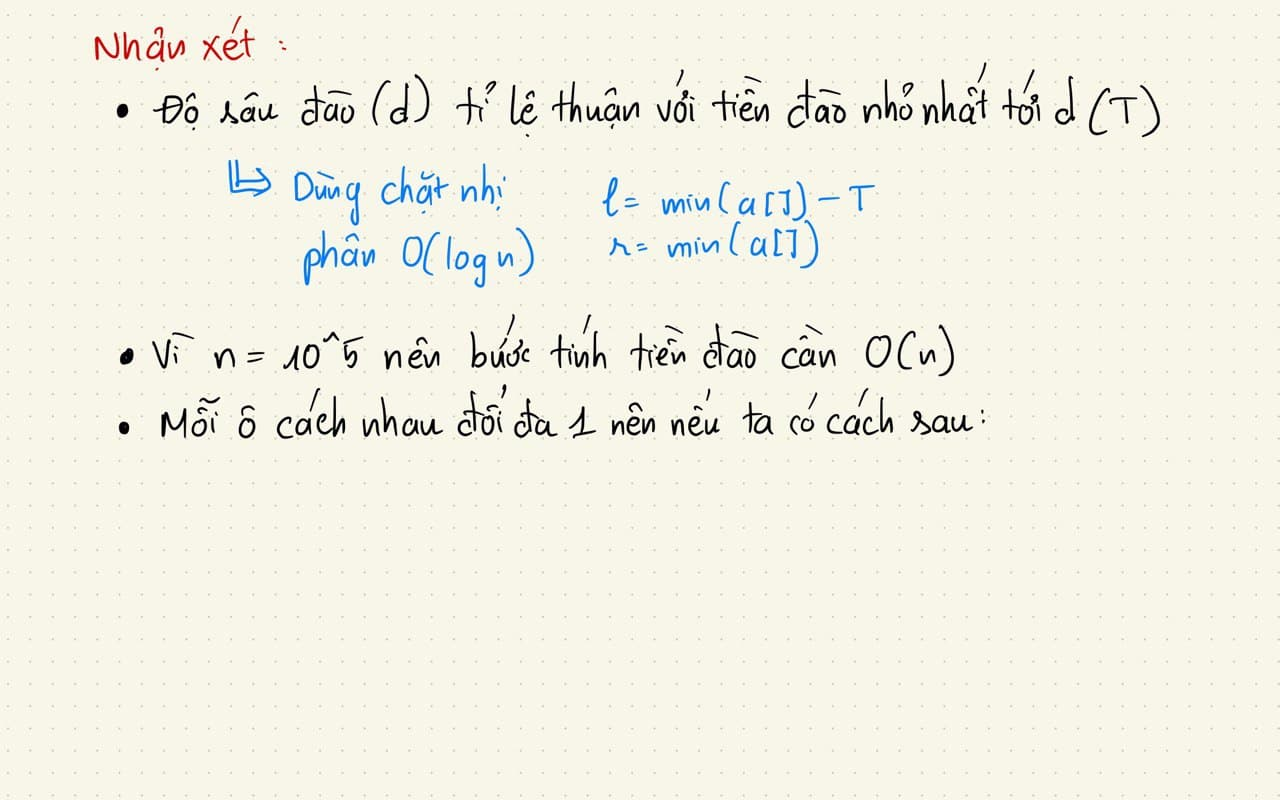 Nhận xét :
• Độ sâu đào (d) tỉ lệ thuận với tiền đào nhỏ nhất tới d (T)
↳ Dùng chặt nhị
phân O(log n)
l = min(a[]) - T
r = min(a[])
• Vì n = 10^5 nên bước tính tiền đào cần O(n)
• Mỗi ô cách nhau đối đa 1 nên nếu ta có cách sau: